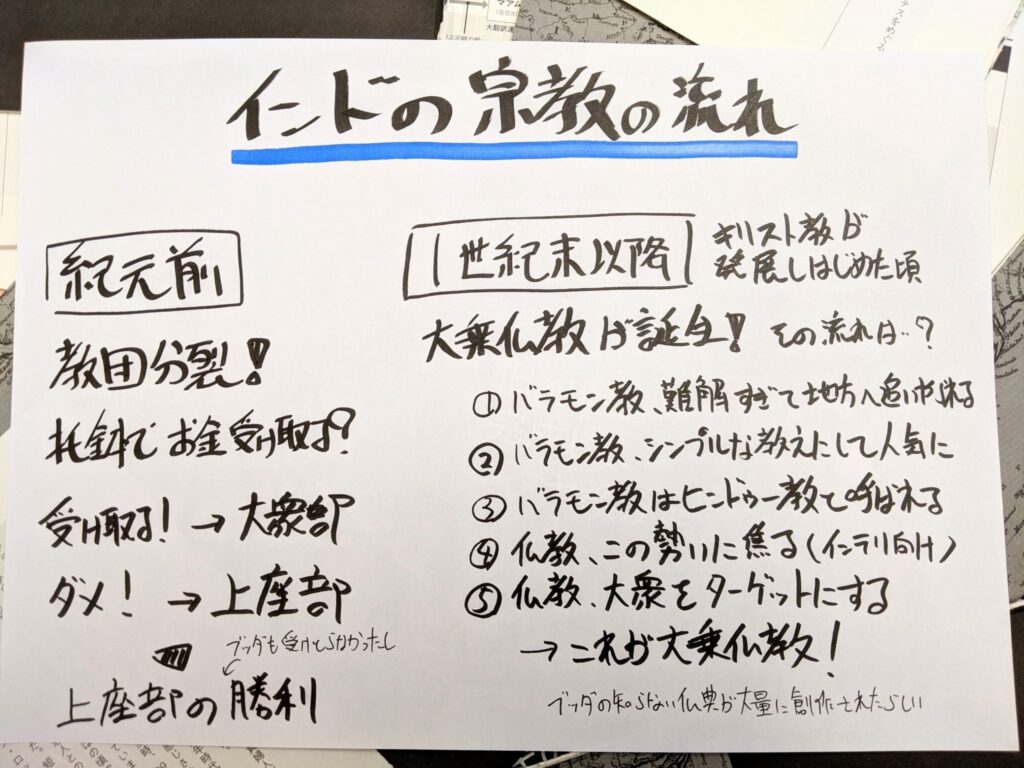 インドの宗教の流れ
紀元前
教団分裂!
托鉢でお金受け取る?
受け取る! → 大衆部
ダメ! → 上座部
ブッダも受けとらなかったし
上座部の勝利
1世紀末以降
キリスト教が
発展しはじめた頃
大乗仏教が誕生! その流れは…?
① バラモン教、難解すぎて地方へ追いやられる
② バラモン教、シンプルな教えにして人気に
③ バラモン教はヒンドゥー教と呼ばれる
④ 仏教、この勢いに焦る(インテリ向け)
⑤ 仏教、大衆をターゲットにする
→ これが大乗仏教!
ブッダの知らない仏典が大量に創作されたらしい